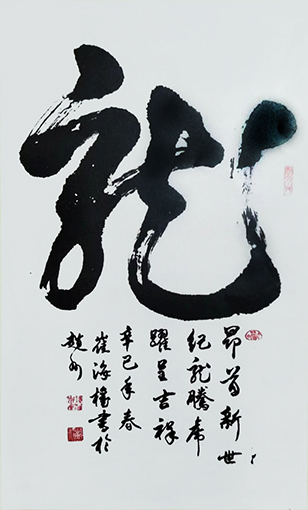 龍
昂首新世
紀龍騰虎
躍呈吉祥
辛巳年春
崔海書於
趙州